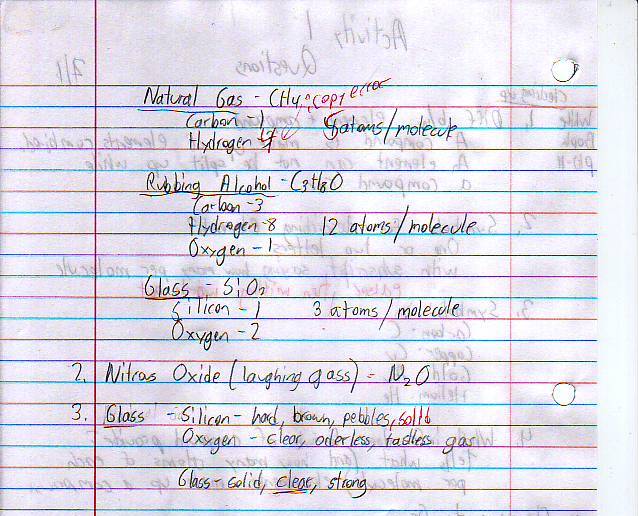 Natural Gas - CH4, copy error
Carbon - 1 5 atoms/molecule
Hydrogen - 4
Rubbing Alcohol - C3H8O
Carbon - 3
Hydrogen - 8 12 atoms/molecule
Oxygen - 1
Glass - SiO2
Silicon - 1 3 atoms/molecule
Oxygen - 2
2. Nitrous Oxide (laughing gass) = N2O
3. Glass - Silicon - hard, brown, pebbles, solid
Oxygen - clear, oderless, tastless gas
Glass - solid, clear, strong